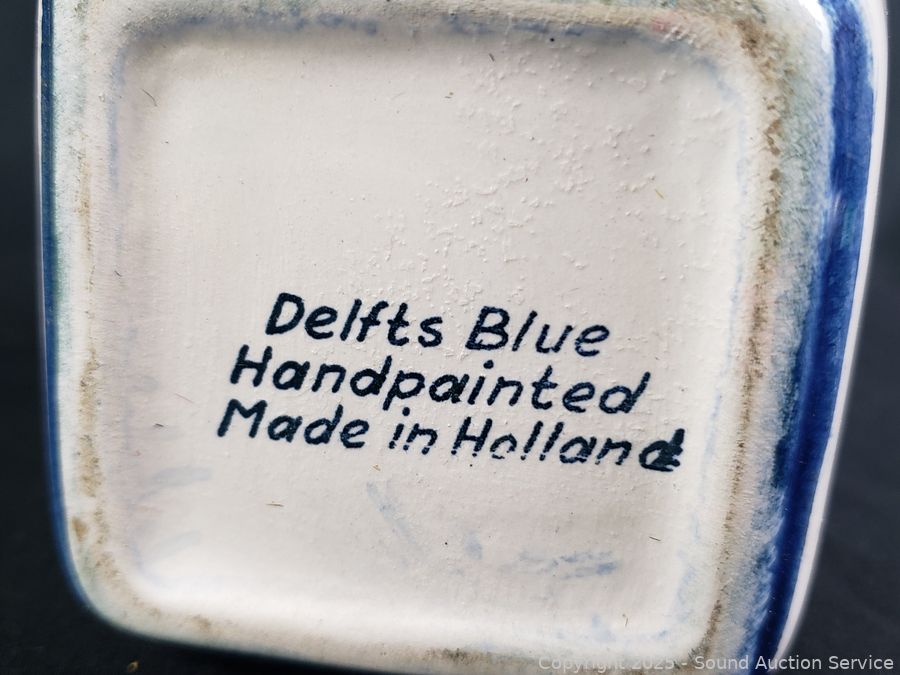 Delfts Blue
Handpainted
Made in Holland
Copyright 2025 - Sound Auction Service